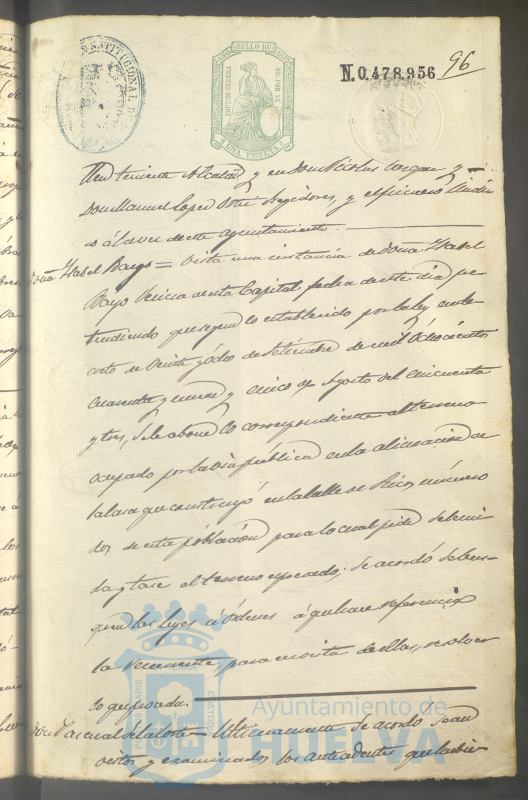 CONSTITUCIONAL
SELLO DE
IMPTO. DE GUERRA
50 POR 5
UNA PESETA
N. 0.478.956
96
Teniente Alcalde y en Don Nicolas Vazquez y
Don Manuel Lopez Regidores, y el primero
so álavez deste ayuntamiento.
Doña Ysabel Bayo = Vista una instancia de Doña Ysabel
Bayo Vecina desta Capital fecha deste dia, pre
tendiendo que segun lo establecido por la ley
de Veinte y ocho de Setiembre de mil Ochocientos
Cuarenta y nueve y cinco de Agosto del cincuenta
y tres, se le abone lo correspondiente al terreno
Ocupado por la via publica en la alineacion de
la casa que construyó en la calle de Rico, número
dos de esta población para lo cual pide se
y tase el terreno espresado; se acordó se
quen las Leyes ú Ordenes á que hace referencia
la recurrente, para en vista de ellas, resolver
lo que proceda.
Don Pascual = Ultimamente se acordó sean
vistos y examinados los antecedentes que
Ayuntamiento de
HUELVA
PORTUS MARIS
CUSTODIA